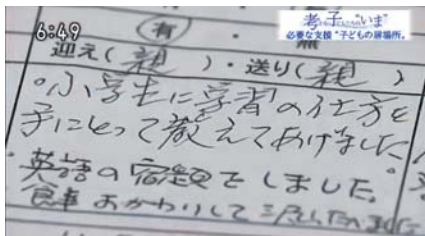 6:49
考 子どもの"いま"
必要な支援"子どもの居場所"
有 ・ 無
迎え(親)・送り(親)
。小学生に学習の仕方を
手にとって教えてあげました。
・英語の宿題をしました。
食事おかわりして